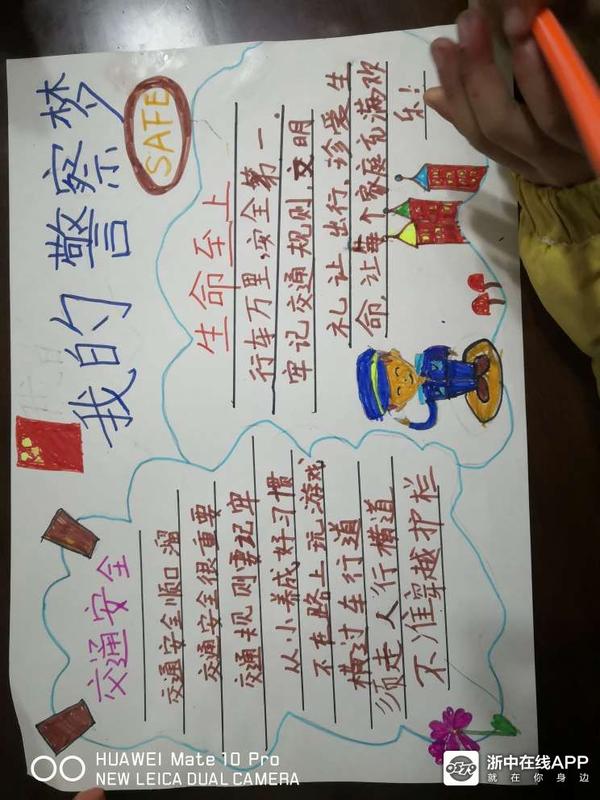 我的警察梦
SAFE
交通安全
交通安全顺口溜
交通安全很重要
交通规则要记牢
从小养成好习惯
不在路上玩游戏
横过车行道
须走人行横道
不准穿越护栏
生命至上
行车万里,安全第一.
牢记交通规则,文明
礼让出行,珍爱生
命,让每个家庭充满欢
乐!
HUAWEI Mate 10 Pro
NEW LEICA DUAL CAMERA
0579
浙中在线APP
就在你身边